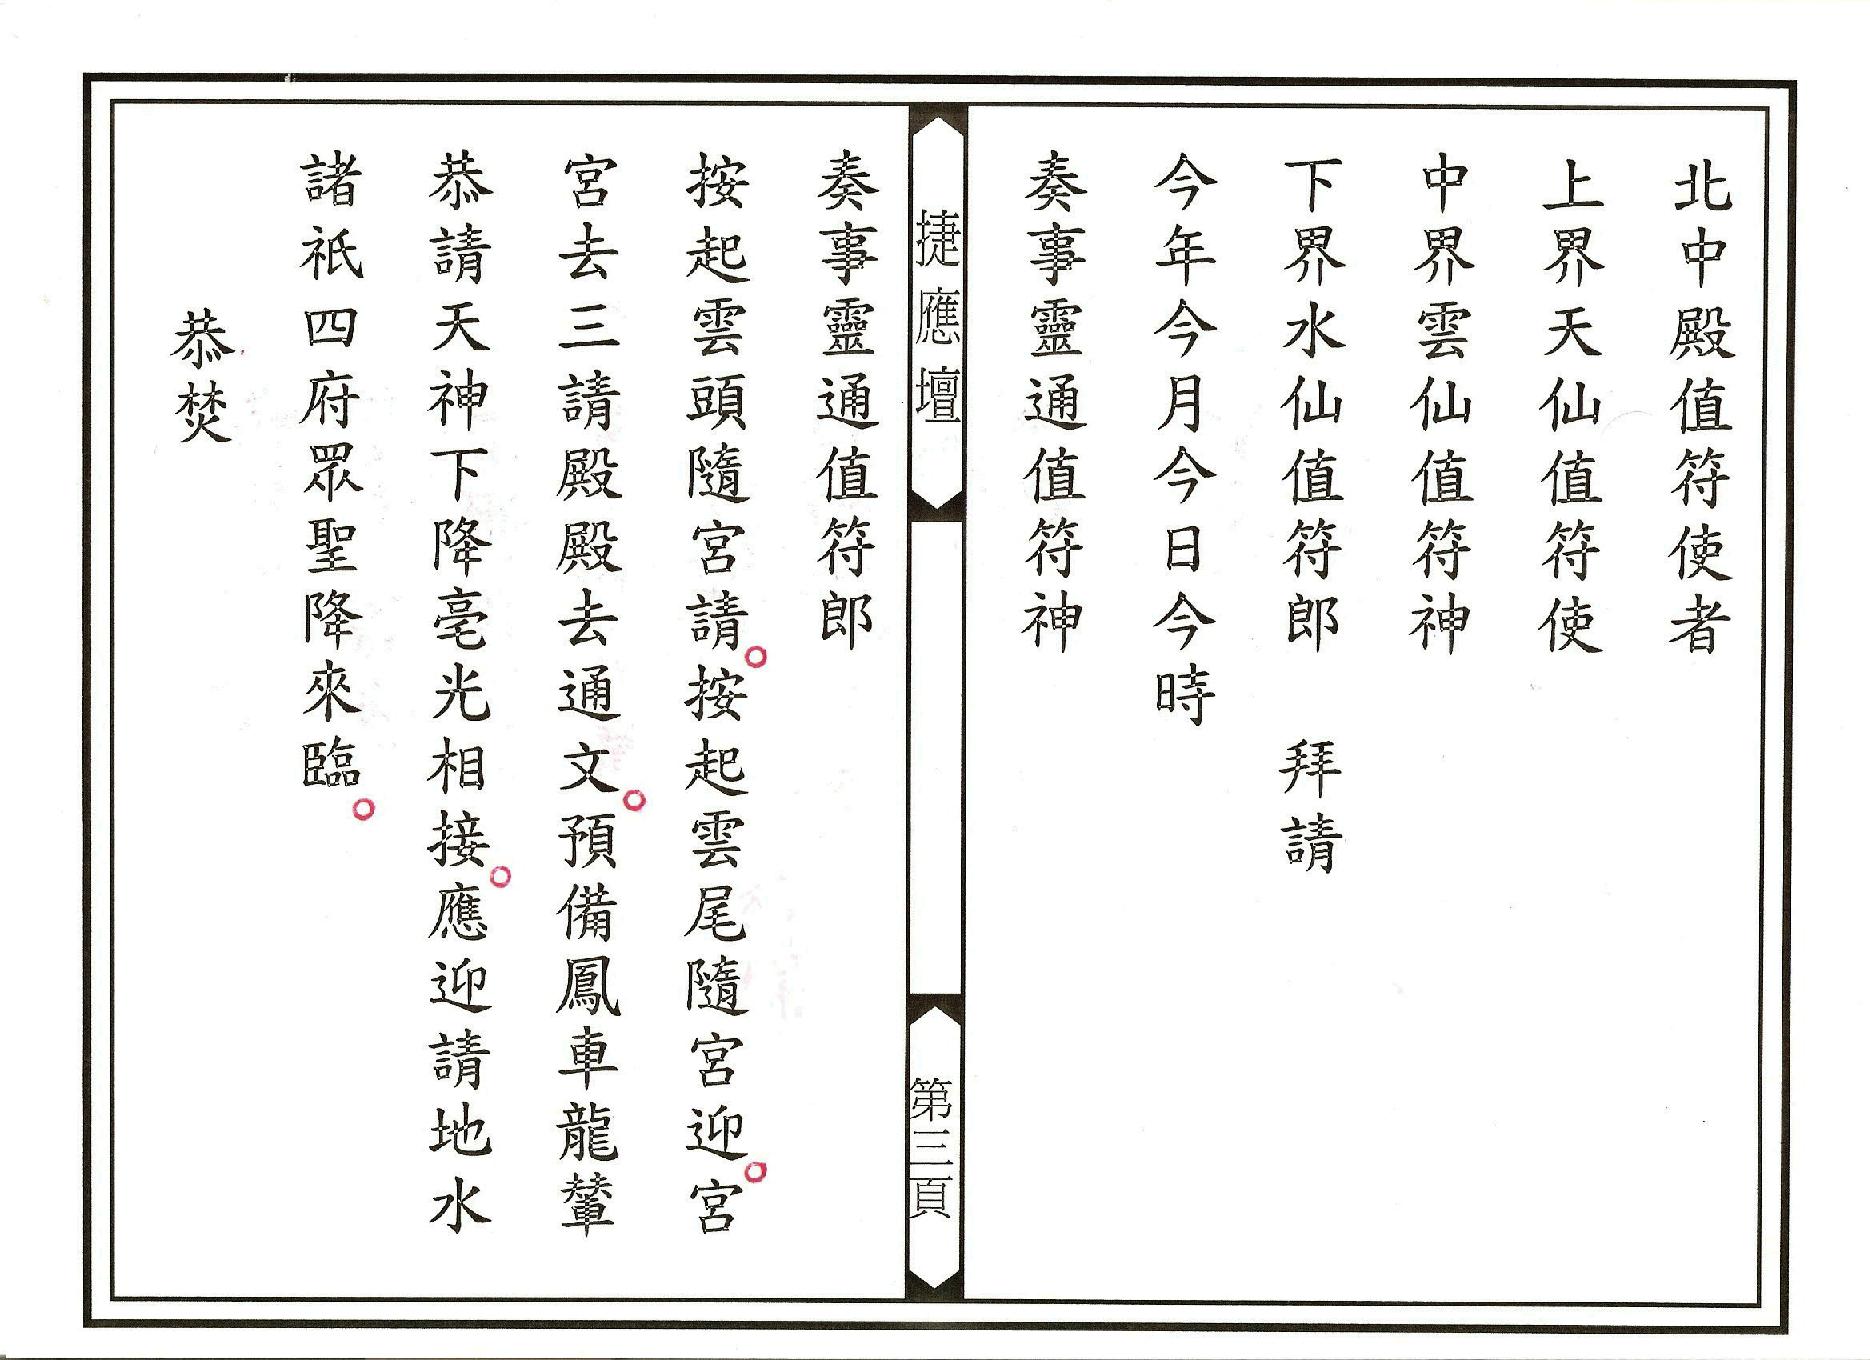 北中殿值符使者
上界天仙值符使
中界雲仙值符神
下界水仙值符郎　拜請
今年今月今日今時
奏事靈通值符神
捷應壇
第三頁
奏事靈通值符郎
按起雲頭隨宮請。按起雲尾隨宮迎。宮
宮去三請殿殿去通文。預備鳳車龍輦
恭請天神下降毫光相接。應迎請地水
諸祇四府眾聖降來臨。
恭焚